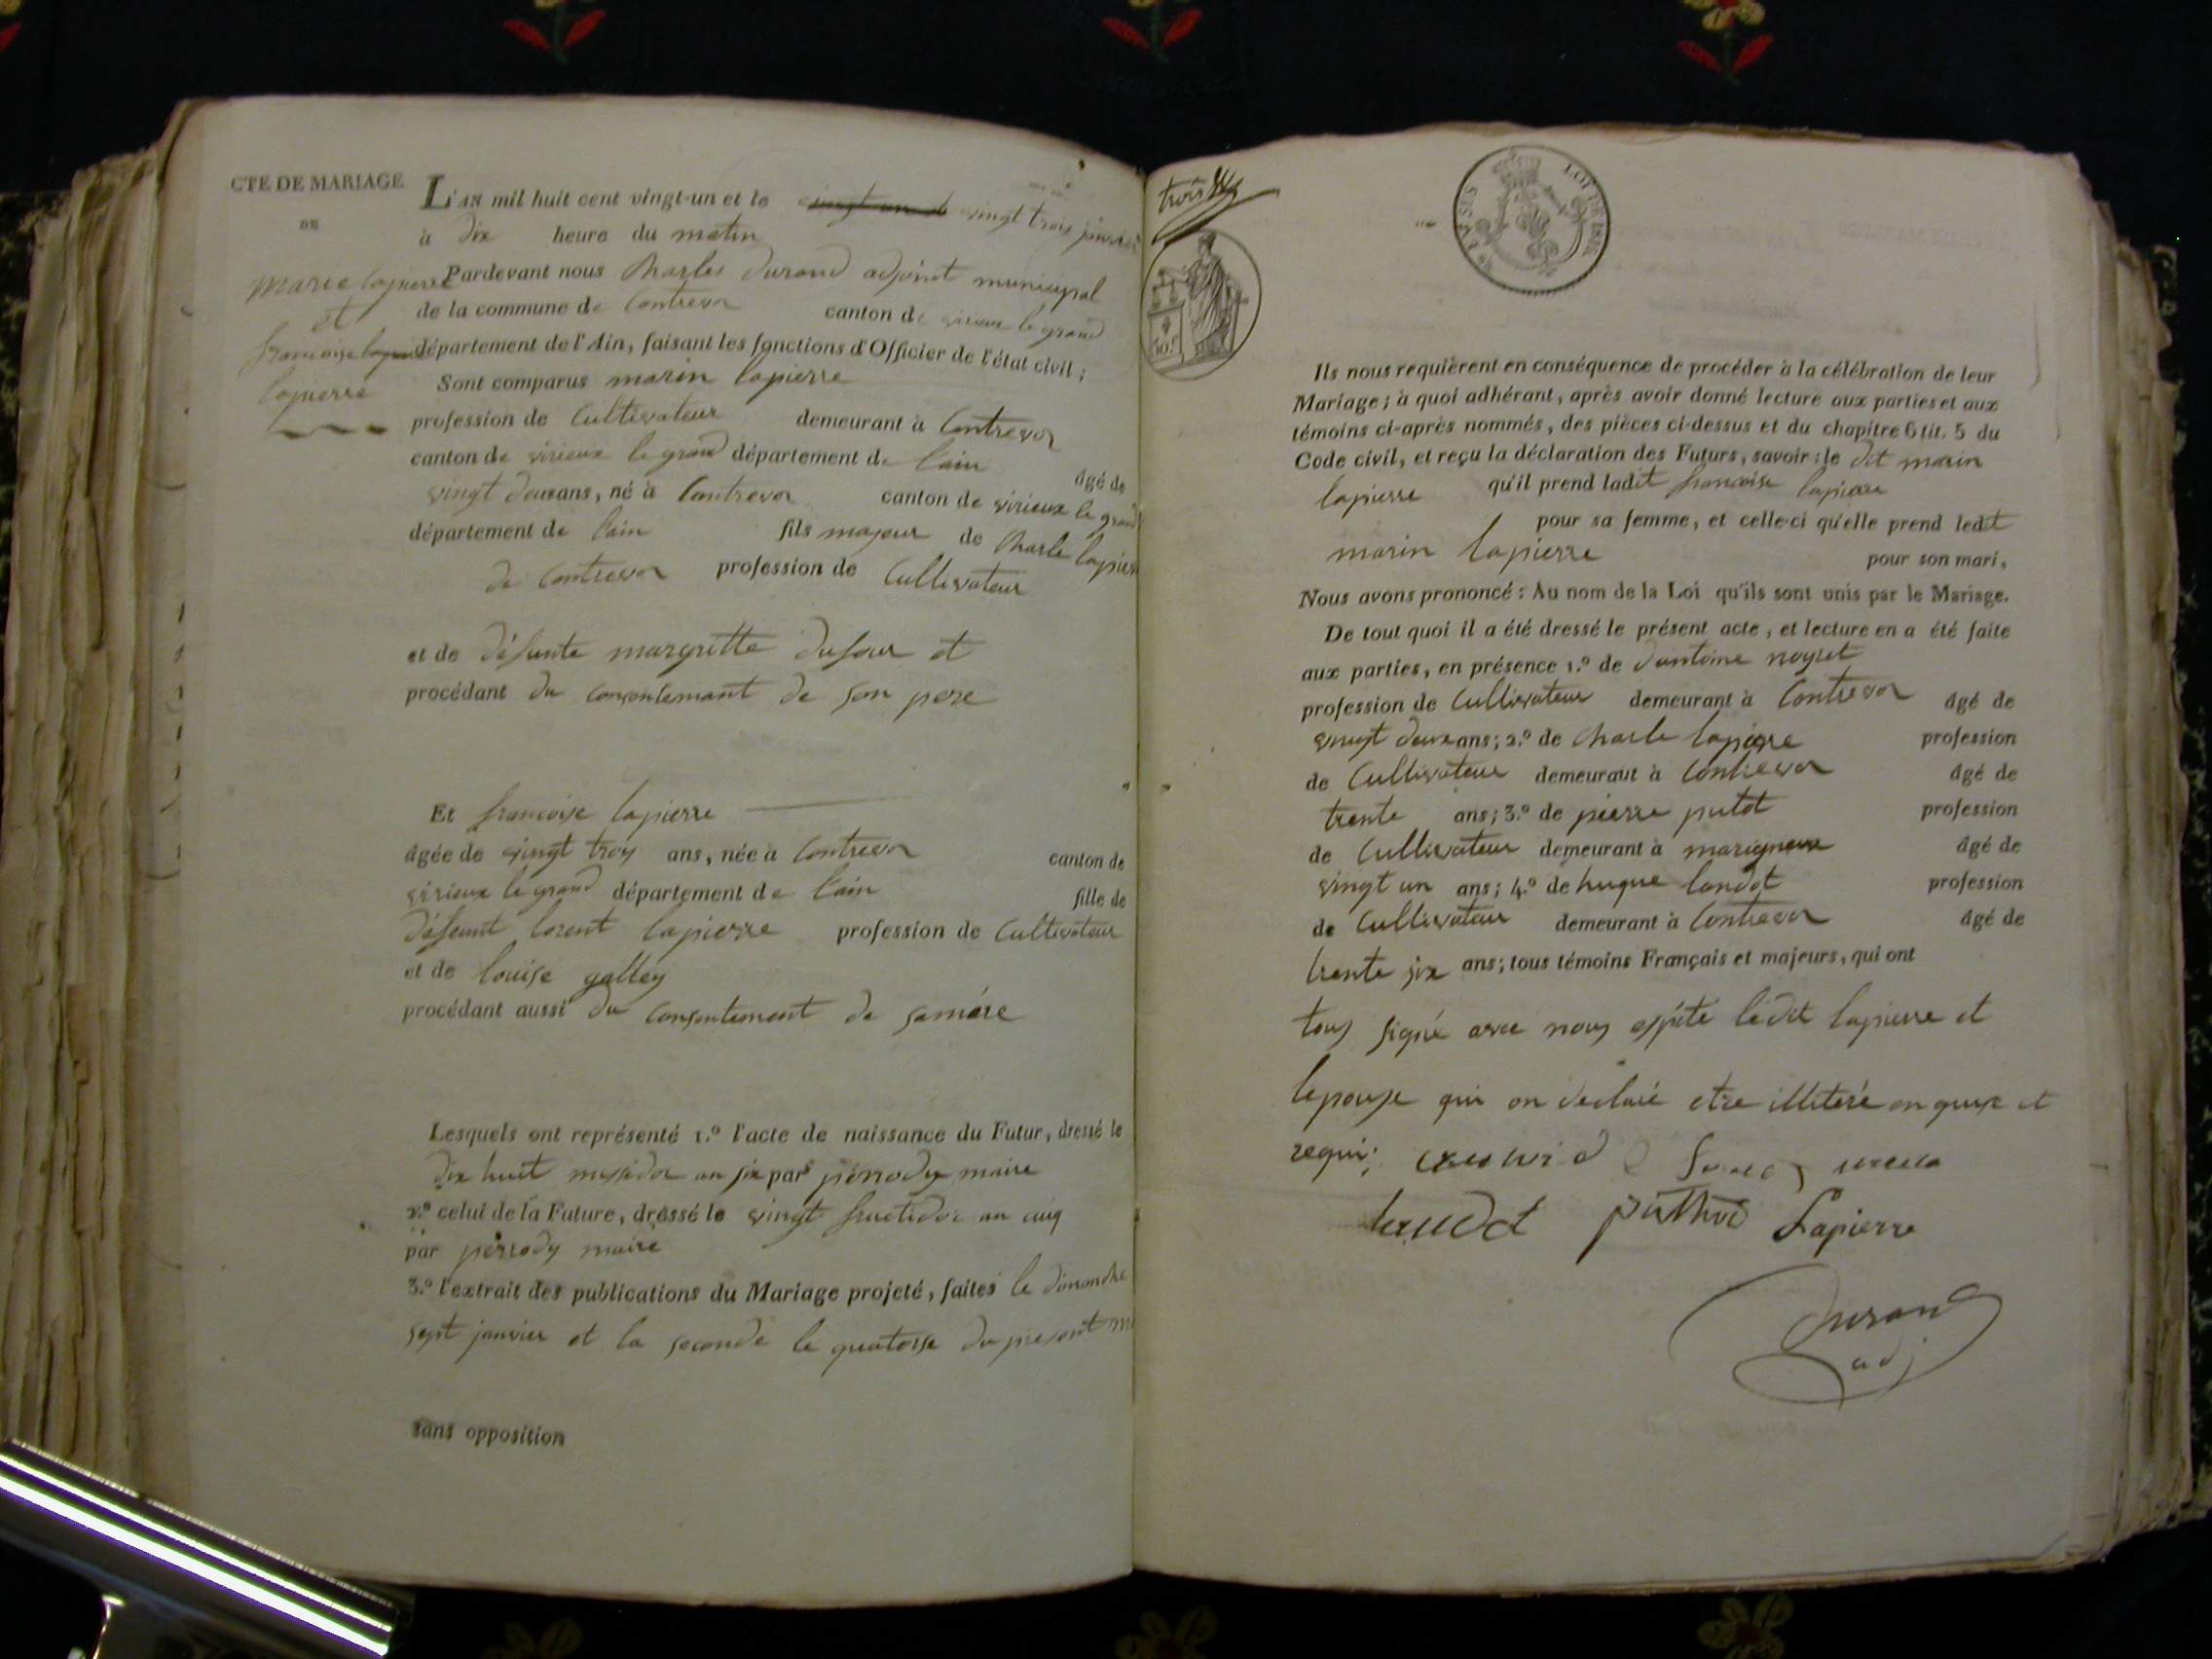 CTE DE MARIAGE
DE
marie lapierre
et
francoise
lapierre
L'AN mil huit cent vingt-un et le vingt trois janvier
à dix heure du matin
Pardevant nous charles durand adjoint municipal
de la commune de Contrevoz canton de virieux le grand
département de l'Ain, faisant les fonctions d'Officier de l'état civil;
Sont comparus marin lapierre
profession de Cultivateur demeurant à Contrevoz
canton de virieux le grand département de l'ain
âgé de
vingt deux ans, né à Contrevoz canton de virieux le grand
département de l'ain fils majeur de charle lapierre
de Contrevoz profession de Cultivateur
et de défunte margritte dufour et
procédant du consentemant de son pere
Et francoise lapierre
âgée de vingt troy ans, née à Contrevoz canton de
virieux le grand département de l'ain fille de
défunt lorent lapierre profession de Cultivateur
et de louise galley
procédant aussi du consentement de samére
Lesquels ont représenté 1.º l'acte de naissance du Futur, dressé le
dix huit messidor an six par perrody maire
2.º celui de la Future, dressé le vingt fructidor an cinq
par perrody maire
3.º l'extrait des publications du Mariage projeté, faites le dimanche
sept janvier et la seconde le quatorse du présent
sans opposition
trois
LOI DE 1816
50.C
Ils nous requièrent en conséquence de procéder à la célébration de leur
Mariage; à quoi adhérant, après avoir donné lecture aux parties et aux
témoins ci-après nommés, des pièces ci-dessus et du chapitre 6 tit. 5 du
Code civil, et reçu la déclaration des Futurs, savoir: le dit marin
lapierre qu'il prend ladit francoise lapierre
pour sa femme, et celle-ci qu'elle prend ledit
marin lapierre pour son mari,
Nous avons prononcé: Au nom de la Loi qu'ils sont unis par le Mariage.
De tout quoi il a été dressé le présent acte, et lecture en a été faite
aux parties, en présence 1.º de d'antoine noyret
profession de Cultivateur demeurant à Contrevoz âgé de
vingt deux ans; 2.º de charle lapierre profession
de Cultivateur demeurant à Contrevoz âgé de
trente ans; 3.º de pierre putot profession
de Cultivateur demeurant à marignieux âgé de
vingt un ans; 4.º de hugue landot profession
de Cultivateur demeurant à Contrevoz âgé de
trente six ans; tous témoins Français et majeurs, qui ont
tous signé avec nous ledit lapierre et
lepouse qui on declaré etre illiteré enquise et
requi;
landot puthod Lapierre
durand
adj